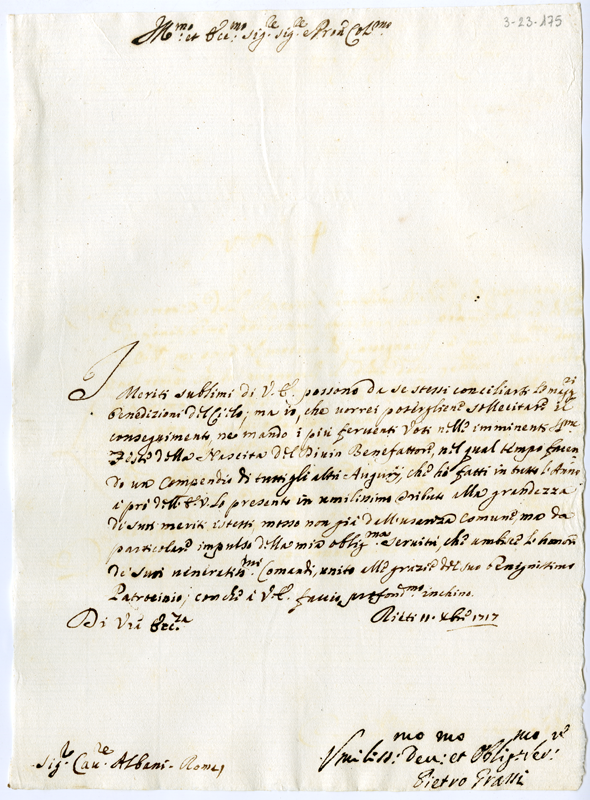 3-23-175
Ill.mo et Ecc.mo Sig.re Sig.re e Pron Col.mo
I Meriti sublimi di V.E. possono da se stessi conciliarsi le mag.ri
benedizioni del Cielo; ma io, che vorrei potergliene sollecitare il
conseguimento, ne mando i più ferventi Voti nelle imminenti S.me
Feste della Nascita del Divin Benefattore, nel qual tempo facen
do un Compendio di tutti gli altri Augurij, che hò fatti in tutto l'Anno
à pro dell'E.V. lo presento in umilissimo tributo alla grandezza
di suoi meriti istessi, mosso non già dall'usanza Comune, ma da
particolare impulso della mia oblig.ma servitù, che ambisce l'honore
de suoi veneratis.mi Comandi, unito alle grazie del suo benignissimo
Patrocinio; con che à V.E. faccio profond.mo inchino.
Di V.ra Ecc.za
Rieti 11. Xbre 1717
Sig.r Cau.re Albani - Roma
Vmiliss.mo Deu.mo et Oblig.mo Ser.re
Pietro Grassi